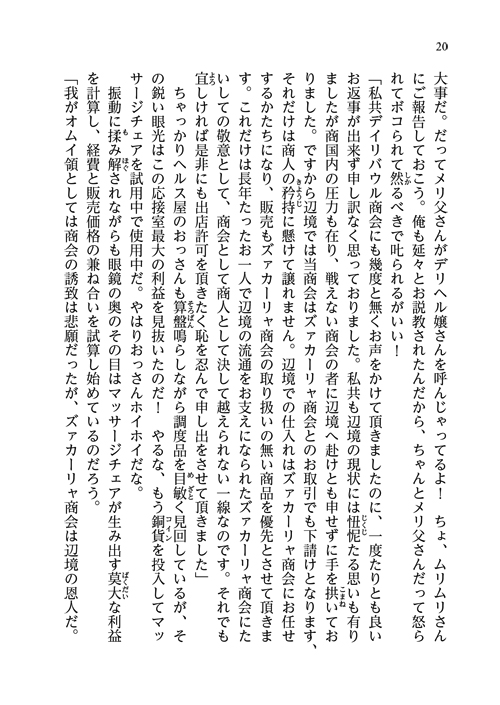 20
大事だ。だってメリ父さんがデリヘル嬢さんを呼んじゃってるよ！　ちょ、ムリムリさん
にご報告しておこう。俺も延々とお説教されたんだから、ちゃんとメリ父さんだって怒ら
れてボコられて然るべきで叱られるがいい！
「私共デイリバウル商会にも幾度と無くお声をかけて頂きましたのに、一度たりとも良い
お返事が出来ず申し訳なく思っておりました。私共も辺境の現状には忸怩たる思いも有り
ましたが商国内の圧力も在り、戦えない商会の者に辺境へ赴けとも申せずに手を拱いてお
りました。ですから辺境では当商会はズァカーリャ商会とのお取引でも下請けとなります、
それだけは商人の矜持に懸けて譲れません。辺境での仕入れはズァカーリャ商会にお任せ
するかたちになり、販売もズァカーリャ商会の取り扱いの無い商品を優先とさせて頂きま
す。これだけは長年たったお一人で辺境の流通をお支えになられたズァカーリャ商会にた
いしての敬意として、商会として商人として決して越えられない一線なのです。それでも
宜しければ是非にも出店許可を頂きたく恥を忍んで申し出をさせて頂きました」
　ちゃっかりヘルス屋のおっさんも算盤鳴らしながら調度品を目敏く見回しているが、そ
の鋭い眼光はこの応接室最大の利益を見抜いたのだ！　やるな、もう銅貨を投入してマッ
サージチェアを試用中で使用中だ。やはりおっさんホイホイだな。
　振動に揉み解されながらも眼鏡の奥のその目はマッサージチェアが生み出す莫大な利益
を計算し、経費と販売価格の兼ね合いを試算し始めているのだろう。
「我がオムイ領としては商会の誘致は悲願だったが、ズァカーリャ商会は辺境の恩人だ。